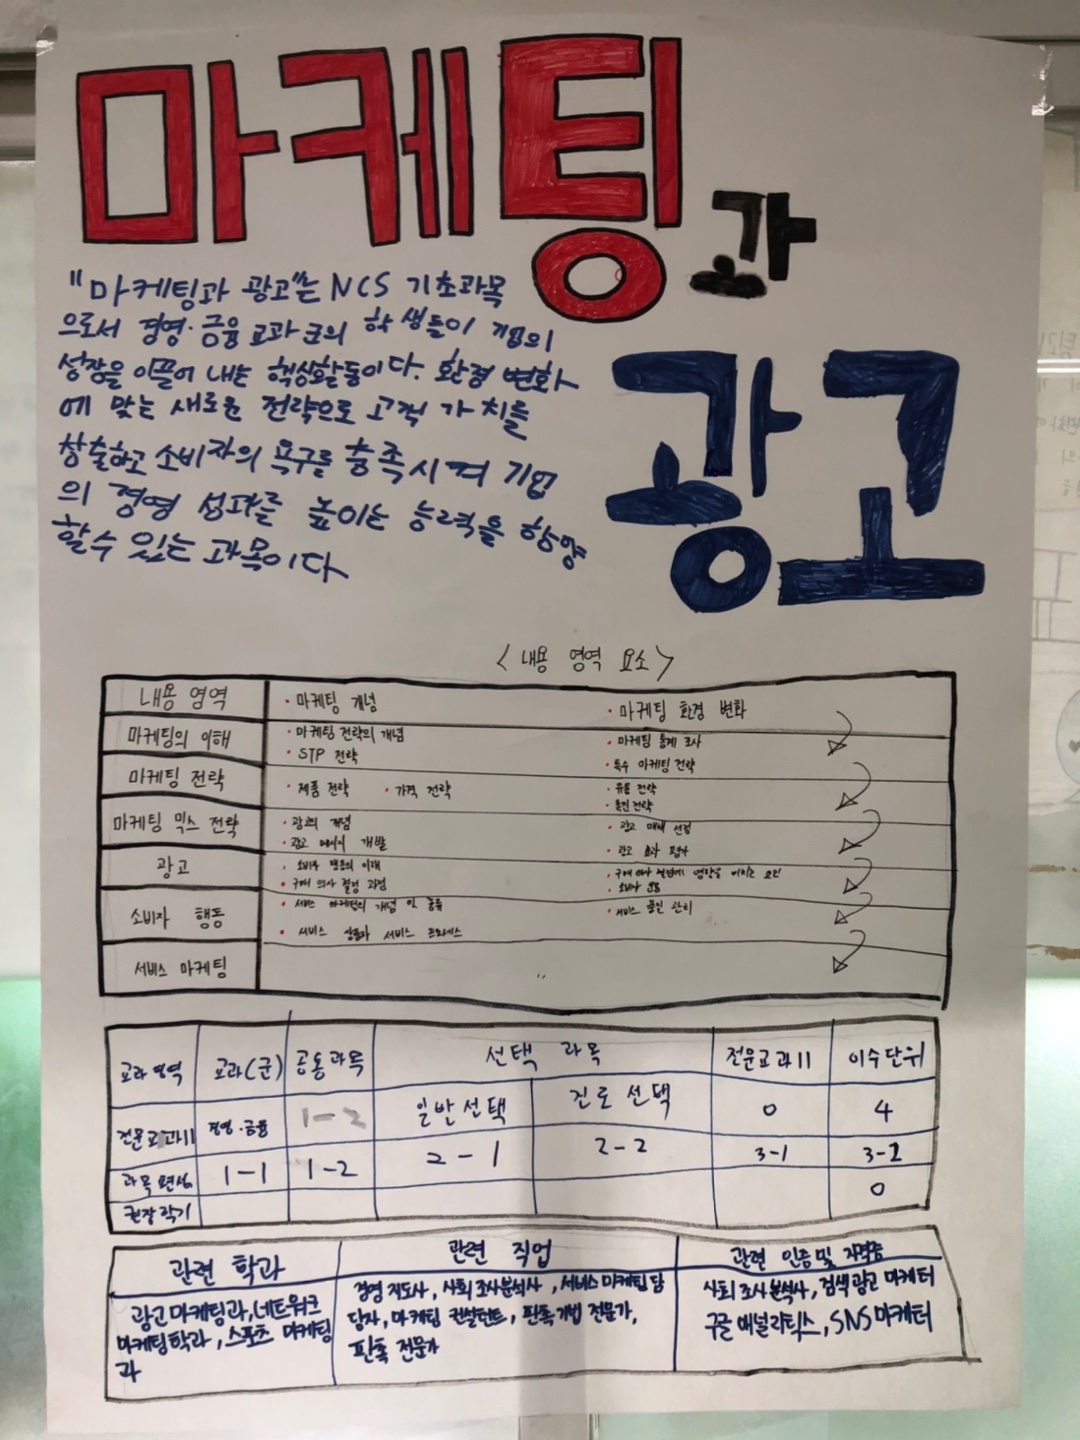 마케팅과
광고
"마케팅과 광고"는 NCS 기초과목
으로서 경영·금융 교과군의 학생들이 기업의
성장을 이끌어 내는 핵심활동이다. 환경 변화
에 맞는 새로운 전략으로 고객 가치를
창출하고 소비자의 욕구를 충족시켜 기업
의 경영 성과를 높이는 능력을 함양
할수 있는 과목이다
<내용 영역 요소>
내용 영역
· 마케팅 개념 · 마케팅 환경 변화
마케팅의 이해
· 마케팅 전략의 개념 · 마케팅 통계 조사
· STP 전략 · 특수 마케팅 전략
마케팅 전략
· 제품 전략 · 가격 전략 · 유통 전략
· 촉진 전략
마케팅 믹스 전략
· 광고의 개념 · 광고 매체 선정
· 광고 메시지 개발 · 광고 효과 평가
광고
· 소비자 행동의 이해 · 구매 의사 결정에 영향을 미치는 요인
· 구매 의사 결정 과정 · 소비자
소비자 행동
· 서비스 마케팅의 개념 및 종류 · 서비스 품질 관리
· 서비스 상품과 서비스 프로세스
서비스 마케팅
교과 영역 교과(군) 공통과목 선택 과목 전문교과II 이수단위
전문교과II 경영·금융 1-2 일반선택 진로 선택 0 4
과목 편성 1-1 1-2 2-1 2-2 3-1 3-2
권장학기 0
관련 학과 관련 직업 관련 인증 및 자격증
광고마케팅과, 네트워크
마케팅학과, 스포츠 마케팅
과
경영 지도사, 사회 조사분석사, 서비스 마케팅 담
당자, 마케팅 컨설턴트, 판촉기법 전문가,
판촉 전문가
사회 조사분석사, 검색광고 마케터
구글 애널리틱스, SNS마케터